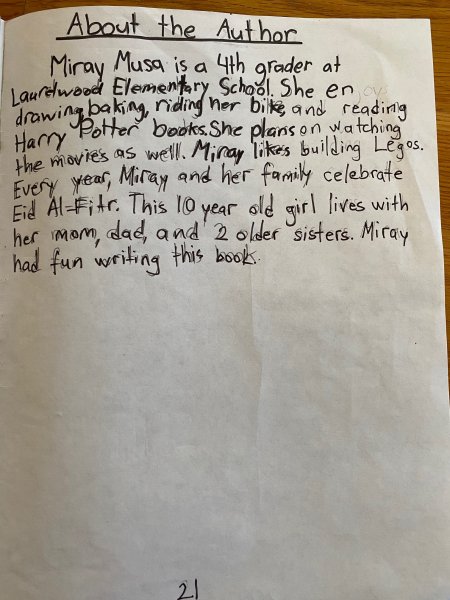 About the Author
Miray Musa is a 4th grader at
Laurelwood Elementary School. She enjoys
drawing, baking, riding her bike, and reading
Harry Potter books. She plans on watching
the movies as well. Miray likes building Legos.
Every year, Miray and her family celebrate
Eid Al-Fitr. This 10 year old girl lives with
her mom, dad, and 2 older sisters. Miray
had fun writing this book.
21